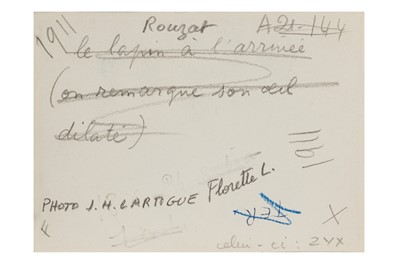 1911
Rouzat A 21-144
le lapin à l'arrivée
(on remarque son œil
dilaté)
1911
PHOTO J.H. LARTIGUE Florette L.
X
celui-ci: 2YX